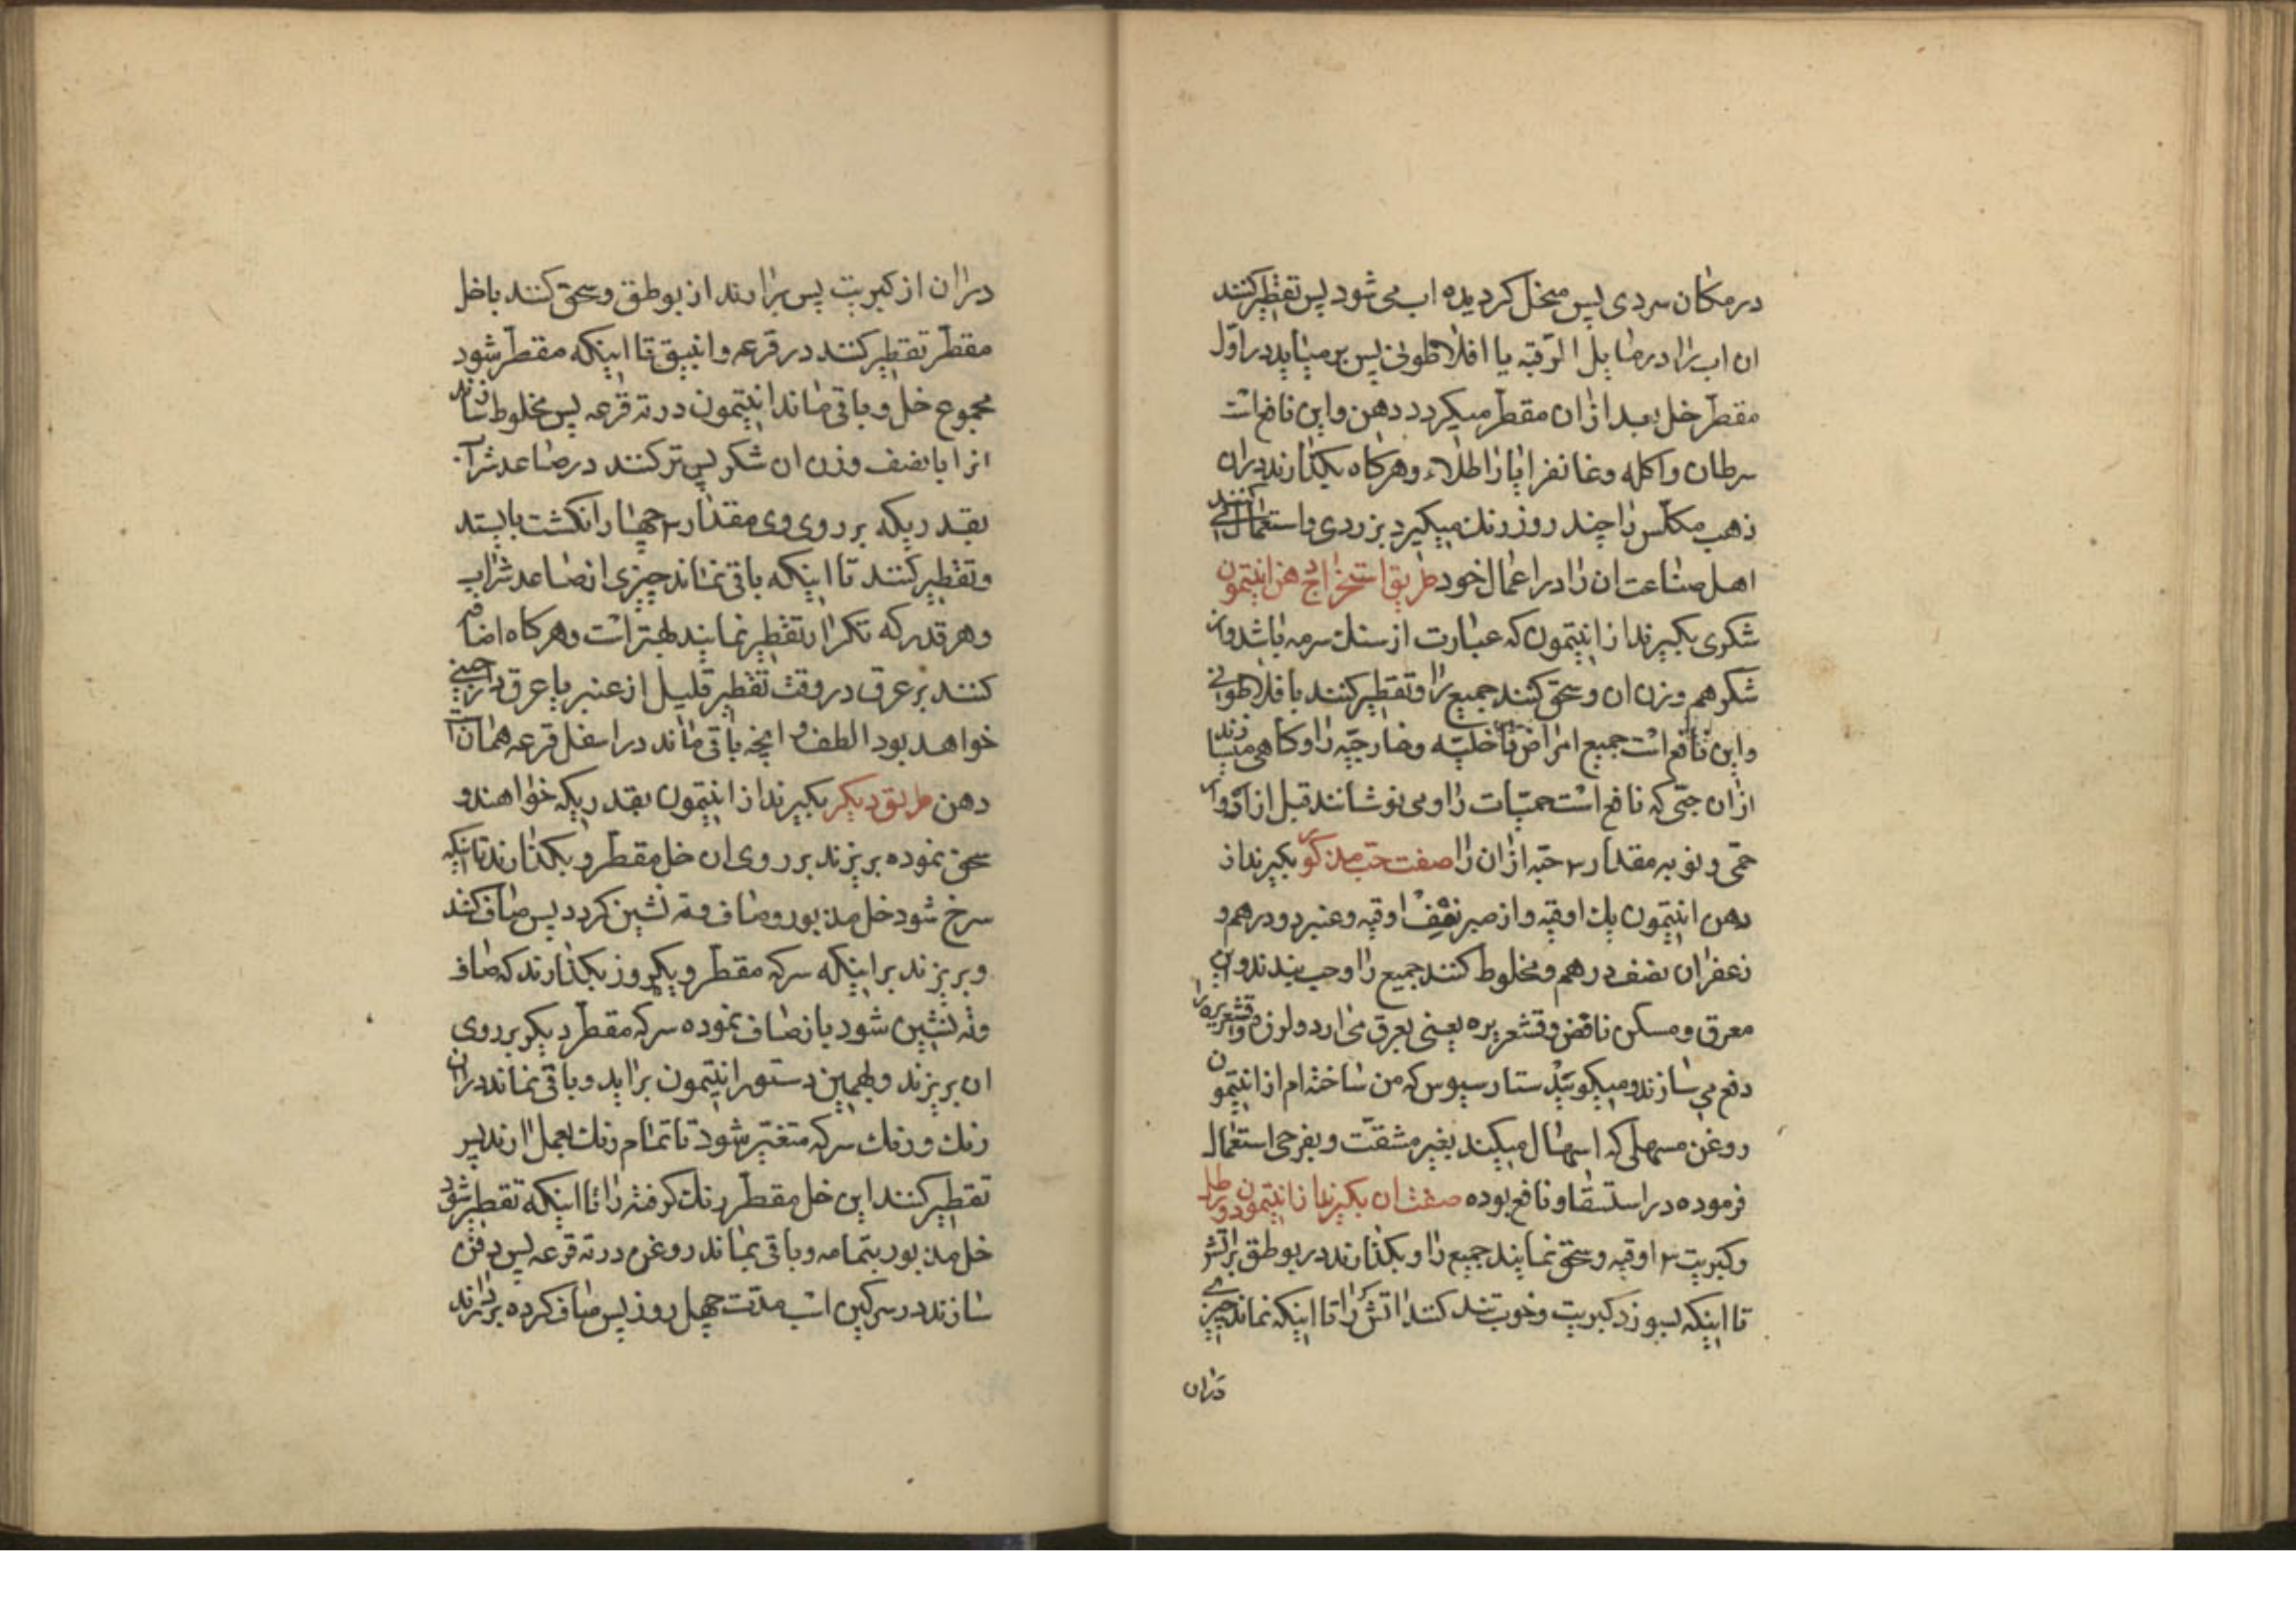 در مکان سردی پس منحل کردیده اب می شود پس تقطیر کنند
ان اب را در مایل الرقبه یا افلاطونی پس بر میاید در اول
مقطر خل بعد ازان مقطر میکردد دهن واین نافع است
سرطان واکله وغانغرایا را طلاء وهرکاه بکذارند دران
ذهب مکلس را چند روز رنك میکیرد بزردی واستعمال کنند
اهل صناعت ان را در اعمال خود طریق استخراج دهن انتیمون
شکری بکیرند از انتیمون که عبارت از سنك سرمه باشد واز
شکر هم وزن ان وسحق کنند جمیع را وتقطیر کنند با فلاطونی
واین نافع است جمیع امراض داخلیه وخارجیه را وکاهی میسازند
ازان حبی که نافع است حمیات را ومی نوشانند قبل از ادوار
حمی ونوبه مقدار ۳ حبه ازان را صفت حب مذکور بکیرند از
دهن انتیمون یك اوقیه واز صبر نصف اوقیه وعنبر دو درهم و
زعفران نصف درهم ومخلوط کنند جمیع را وحب بندند واین
معرق ومسکن ناقض وقشعریره یعنی بعرق می ارد ولرز وقشعریره را
دفع می سازند ومیکوید ستارسیوس که من ساخته ام از انتیمون
روغن مسهلی که اسهال میکند بغیر مشقت وبغرحی استعمال
فرموده در استسقا ونافع بوده صفت ان بکیرند از انتیمون دو رطل
وکبریت ۳ اوقیه وسحق نمایند جمیع را وبکذارند در بوطق بر اتش
تا اینکه بسوزد کبریت وخوب تند کنند اتش را تا اینکه نماند چیزی
دران
دران از کبریت پس برارند از بوطق وسحق کنند با خل
مقطر تقطیر کنند در قرعه وانبیق تا اینکه مقطر شود
مجموع خل وباقی ماند انتیمون در ته قرعه پس مخلوط سازند
انرا با نصف وزن ان شکر پس تر کنند در صاعد شراب
بقدریکه بر روی وی مقدار ۴ چهار انکشت بایستد
وتقطیر کنند تا اینکه باقی نماند چیزی از صاعد شراب
وهر قدر که تکرار تقطیر نمایند بهتر است وهرکاه اضافه
کنند بر عرق در وقت تقطیر قلیل از عنبر یا عرق دارچینی
خواهد بود الطف وانچه باقی ماند در اسفل قرعه همان است
دهن طریق دیکر بکیرند از انتیمون بقدریکه خواهند و
سحق نموده بریزند بر روی ان خل مقطر وبکذارند تا اینکه
سرخ شود خل مذبور وصاف وته نشین کردد پس صاف کنند
وبریزند بر اینکه سرکه مقطر ویکروز بکذارند که صاف
وته نشین شود باز صاف نموده سرکه مقطر دیکر بر روی
ان بریزند وبهمین دستور انتیمون براید وباقی نماند دران
رنك ورنك سرکه متغیر شود تا تمام رنك بعمل ارند پس
تقطیر کنند این خل مقطر رنك کرفته را تا اینکه تقطیر شود
خل مذبور بتمامه وباقی بماند روغن در ته قرعه پس دفن
سازند در سرکین اسب مدت چهل روز پس صاف کرده بردارند